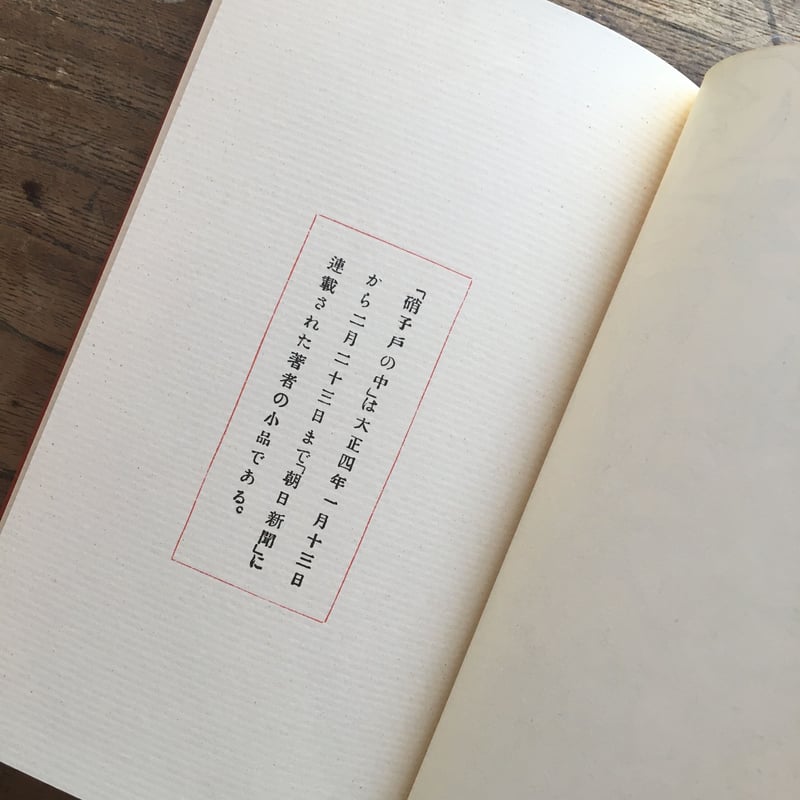 「硝子戸の中」は大正四年一月十三日
から二月二十三日まで「朝日新聞」に
連載された著者の小品である。